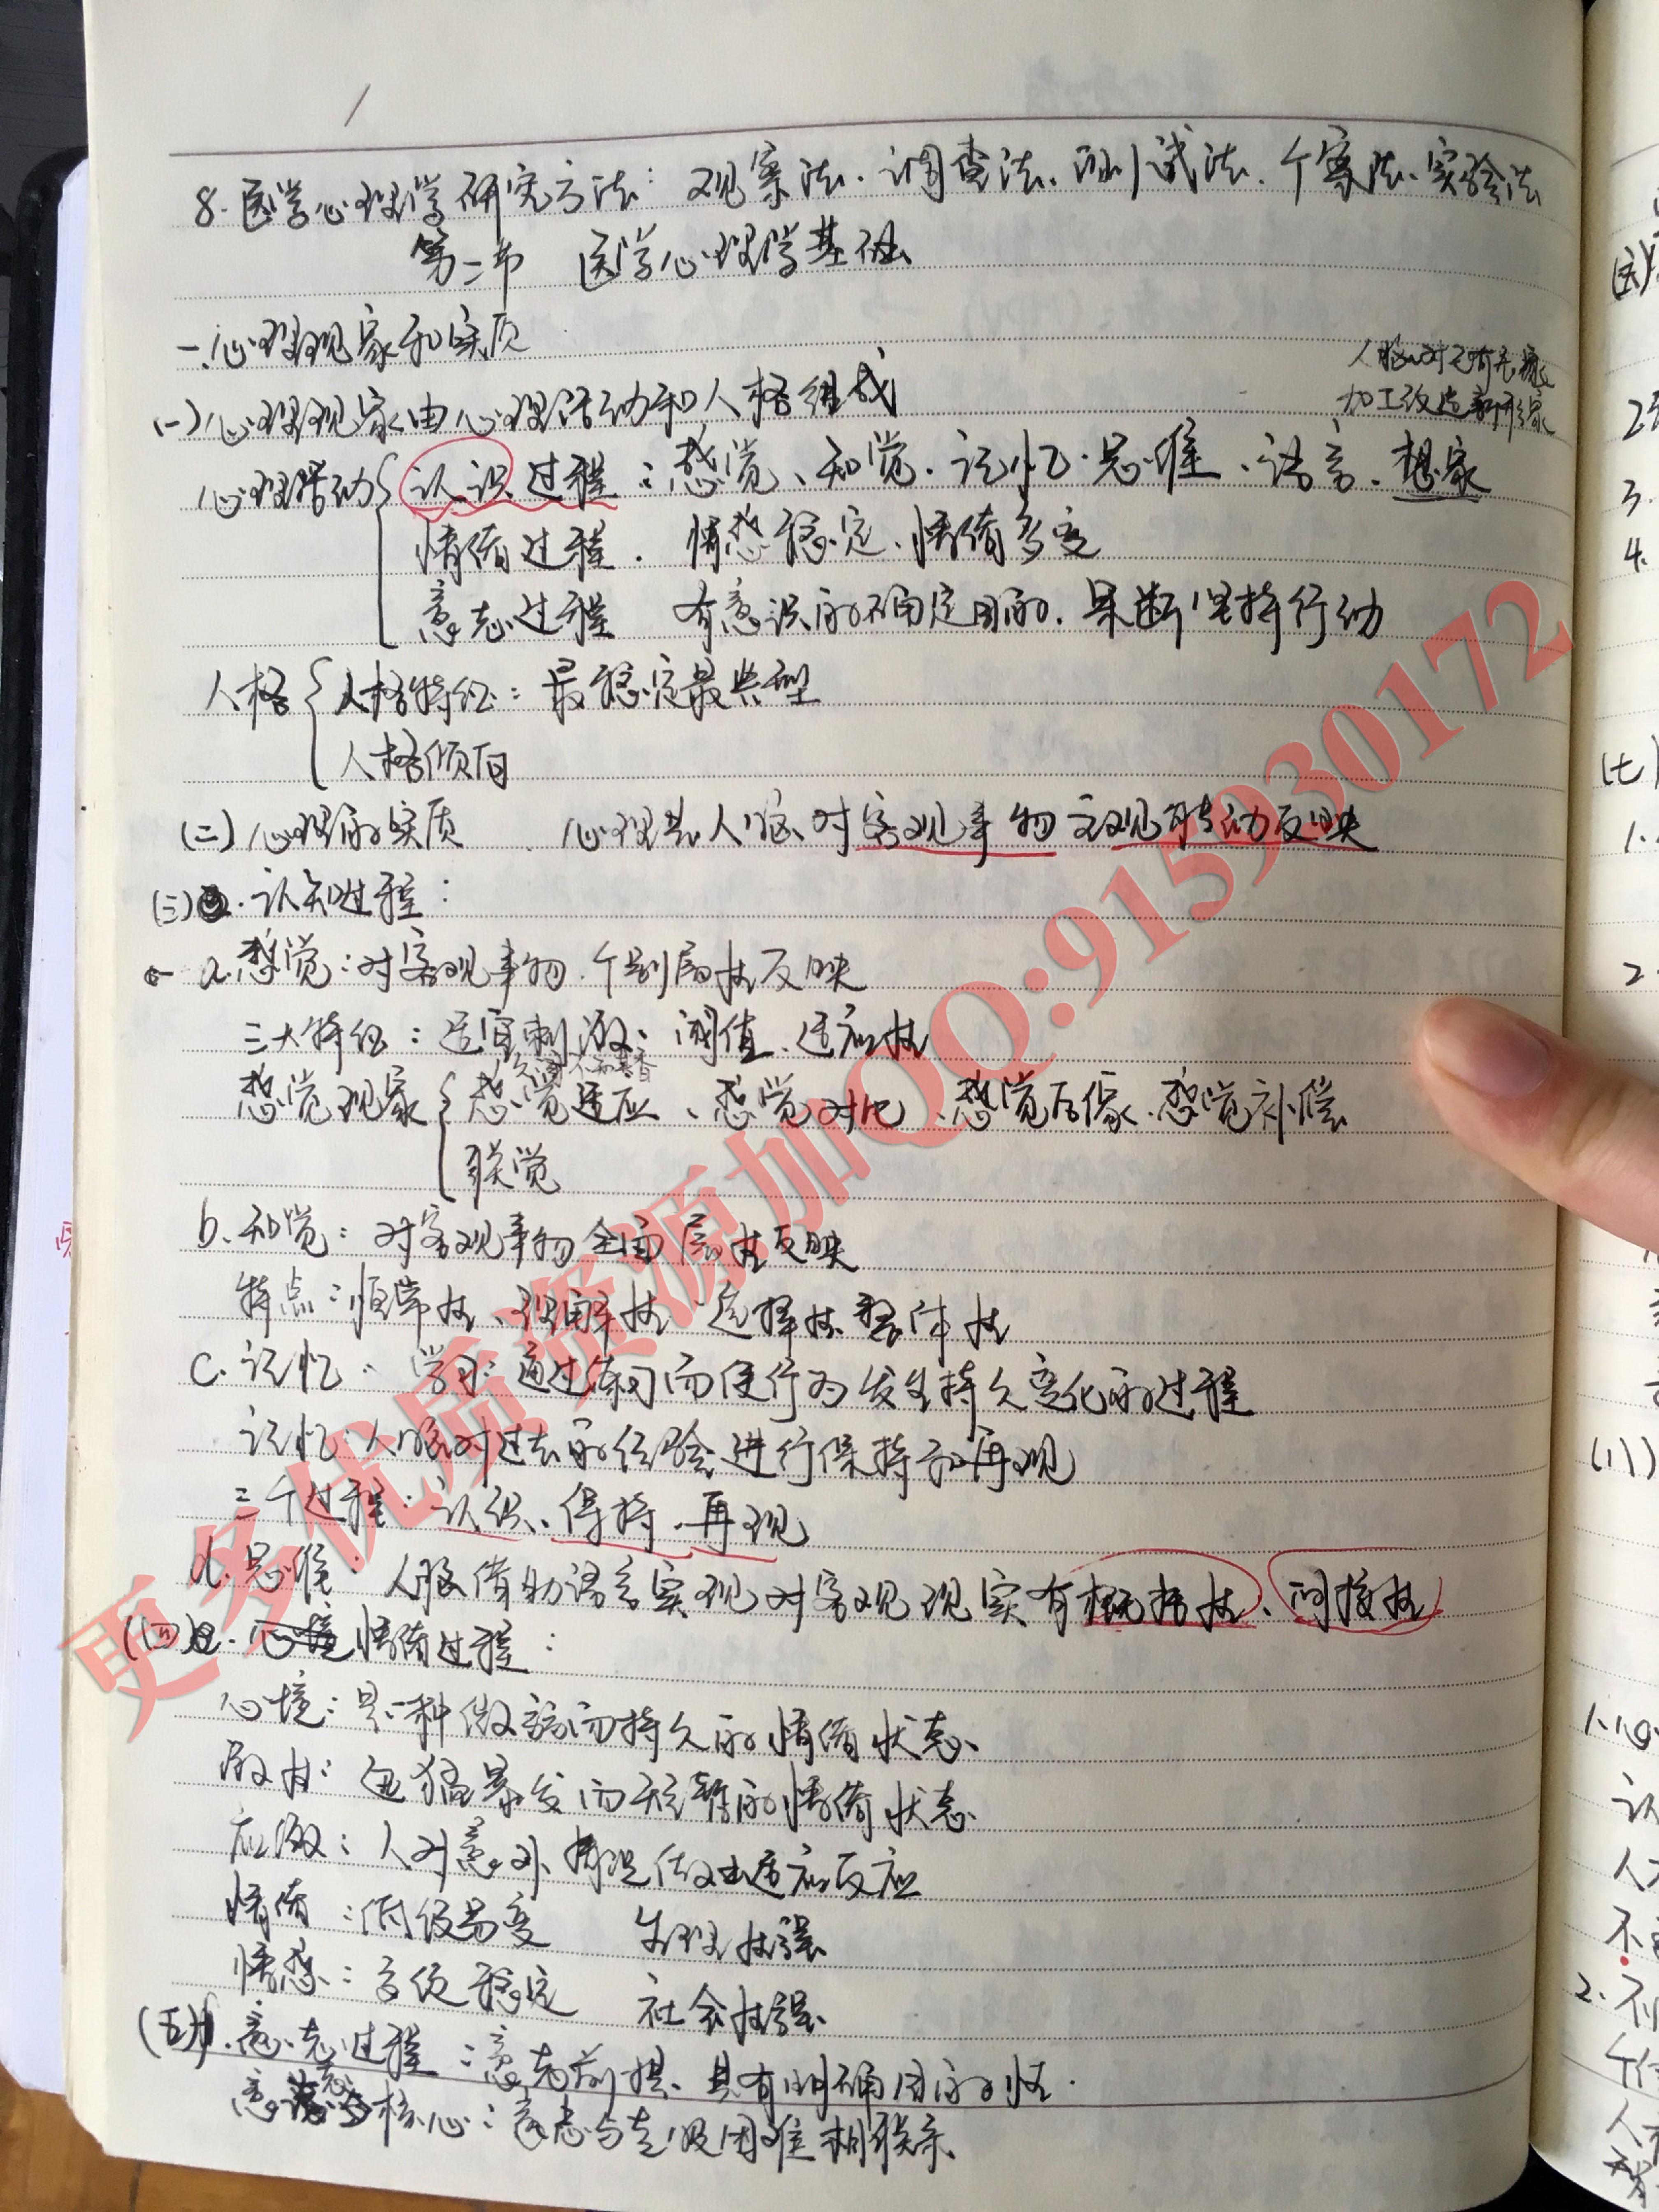 8. 医学心理学研究方法：观察法、调查法、测试法、个案法、实验法
第二节 医学心理学基础
一、心理现象和实质
人脑对已有表象
加工改造新形象
(一)心理现象由心理活动和人格组成
心理活动{认识过程：感觉、知觉、记忆、思维、语言、想象
情绪过程. 情感稳定、情绪多变
意志过程 有意识的确定目的、果断坚持行动
人格{人格特征：最稳定最典型
人格倾向
(二)心理的实质 心理是人脑对客观事物主观能动反映
(三). 认知过程：
a. 感觉：对客观事物个别属性反映
三大特征：适宜刺激、阈值、适应性
久闻不知其香
感觉现象{感觉适应、感觉对比、感觉后像、感觉补偿
联觉
b. 知觉：对客观事物全面属性反映
特点：恒常性、理解性、选择性、整体性
c. 记忆： 学习：通过练习而使行为发生持久变化的过程
记忆：人脑对过去的经验进行保持和再现
三个过程：认识、保持、再现
d. 思维：人脑借助语言实现对客观现实有概括性、间接性
(四). 情绪过程：
心境：是一种微弱而持久的情绪状态
激情：迅猛暴发而短暂的情绪状态
应激：人对意外情况做出适应反应
情绪：低级易变 生理性强
情感：高级稳定 社会性强
(五). 意志过程：意志前提、具有明确目的性.
意志核心：意志与克服困难相联系
更多优质资源加QQ:915930172
(七)
1.
2.
3.
4.
(八)
认
不
2.不